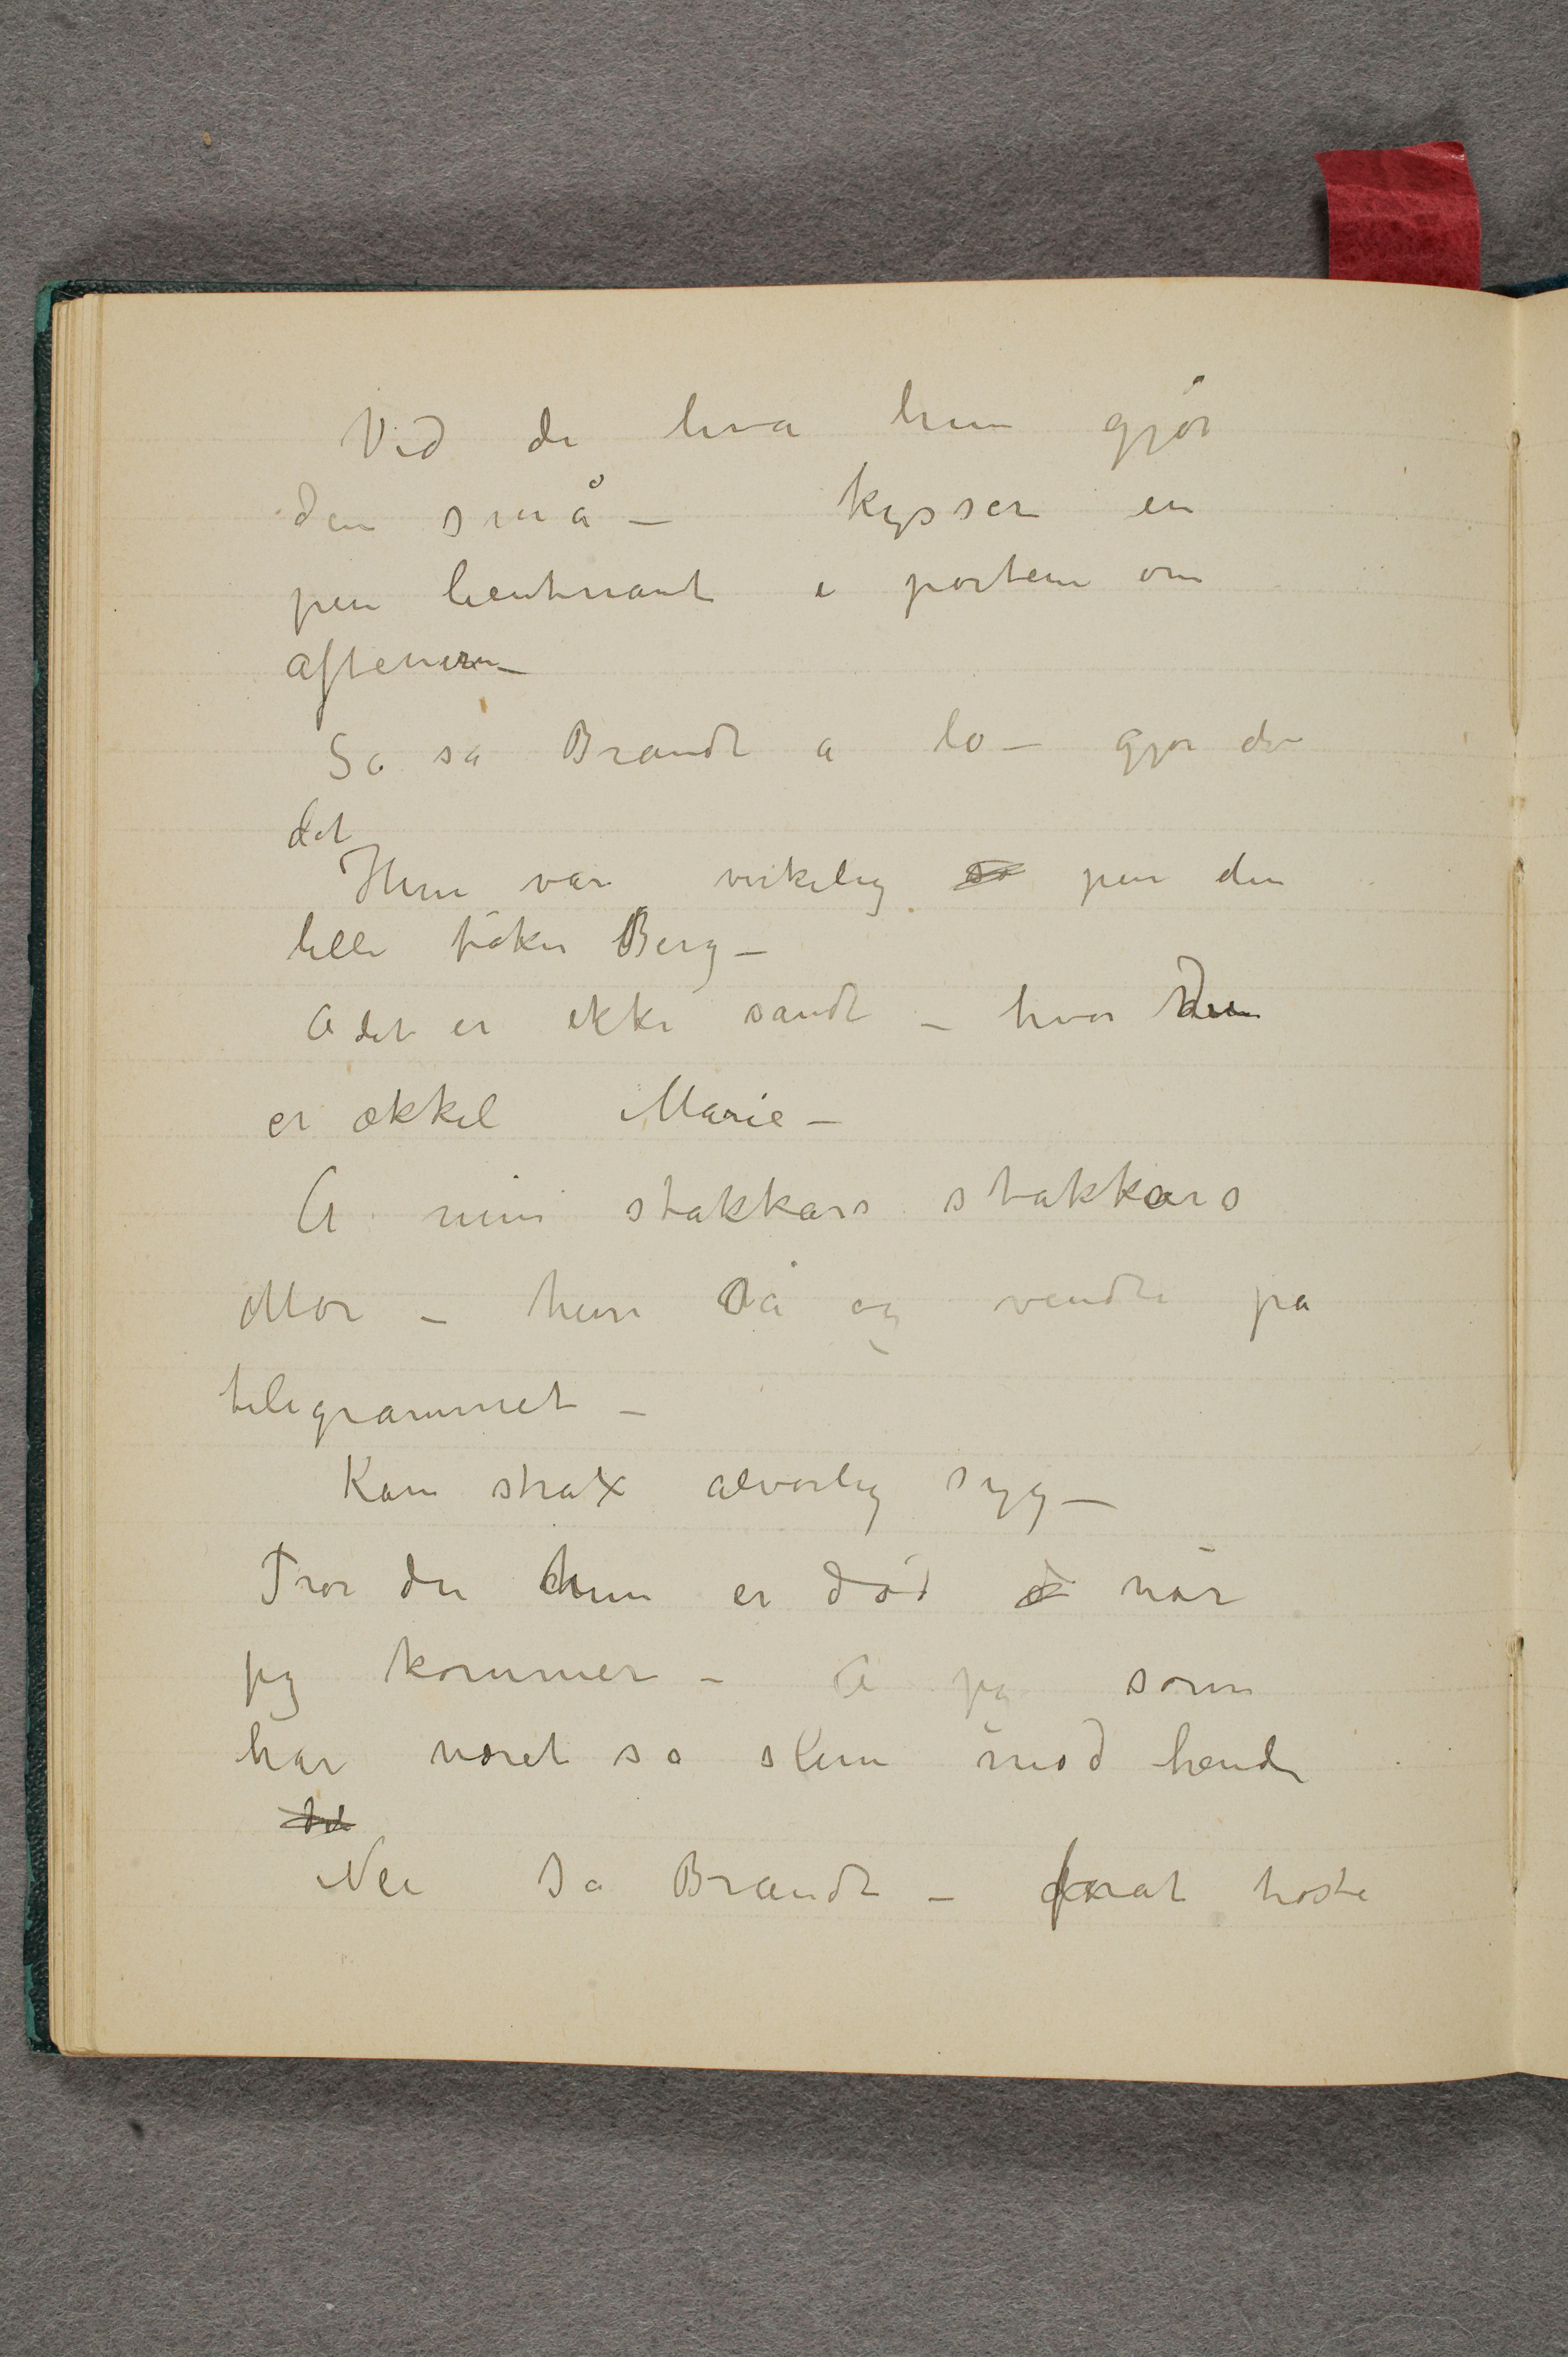 Ved de hva hun gjør
den små – kysser en
pen lieutnant i porten om
aftenen –
Så sa Brandt a lo – gjør du
det
Hun var virkelig så pen den
lille frøken Berg –
A det er ikke sandt – hvor du
er ækkel Marie –
A min stakkars stakkars
Mor – hun så og vendte på
telegrammet –
Kom strax alvorlig syg –
Tror du hun er død når
jeg kommer – A jeg som
har været så slem mod hende
det
Nei sa Brandt – forat trøste